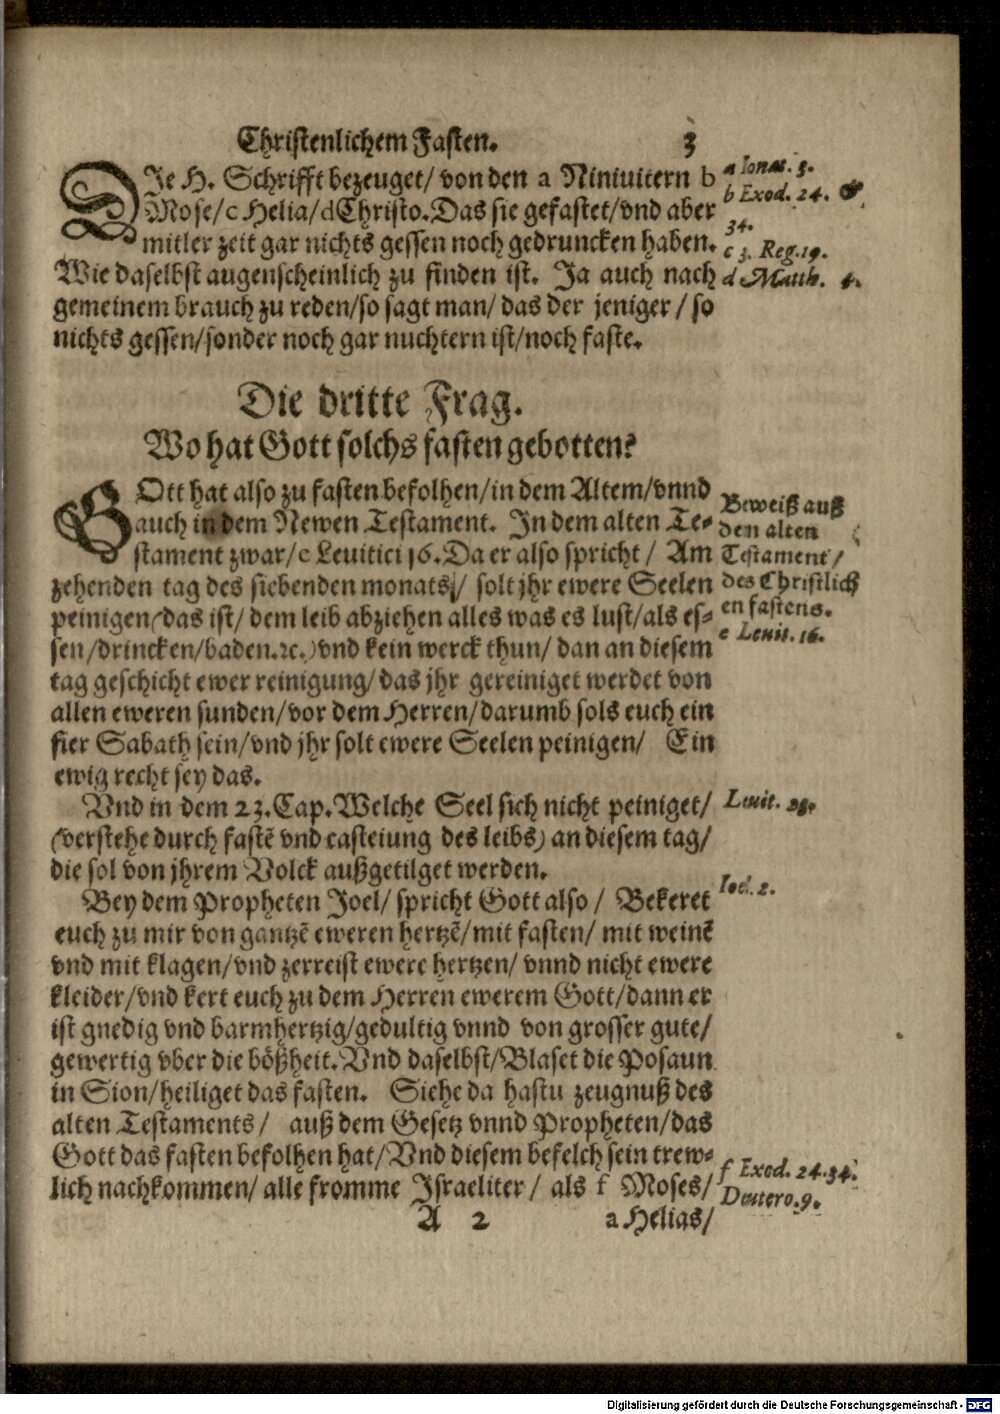 Christenlichem Fasten. 3
DIe H. Schrifft bezeuget/ von den a Niniuitern b
Mose/c Helia/dChristo. Das sie gefastet/vnd aber
mitler zeit gar nichts gessen noch gedruncken haben.
Wie daselbst augenscheinlich zu finden ist. Ja auch nach
gemeinem brauch zu reden/so sagt man/ das der jeniger/ so
nichts gessen/sonder noch gar nuchtern ist/noch faste.
a Ionae. 3.
b Exod. 24. &
34.
c 3. Reg. 19.
d Matth. 4.
Die dritte Frag.
Wo hat Gott solchs fasten gebotten?
GOtt hat also zu fasten befolhen/in dem Altem/vnnd
auch in dem Newen Testament. In dem alten Te-
stament zwar/e Leuitici 16. Da er also spricht/ Am
zehenden tag des siebenden monats/ solt jhr ewere Seelen
peinigen(das ist/ dem leib abziehen alles was es lust/als es-
sen/drincken/baden.ꝛc.)vnd kein werck thun/ dan an diesem
tag geschicht ewer reinigung/das jhr gereiniget werdet von
allen eweren sunden/vor dem Herren/darumb sols euch ein
fier Sabath sein/vnd jhr solt ewere Seelen peinigen/ Ein
ewig recht sey das.
Beweiß auß
den alten
Testament/
des Christlich
en fastens.
e Leuit. 16.
Vnd in dem 23. Cap. Welche Seel sich nicht peiniget/
(verstehe durch fastē vnd casteiung des leibs) an diesem tag/
die sol von jhrem Volck außgetilget werden.
Leuit. 23.
Bey dem Propheten Joel/ spricht Gott also/ Bekeret
euch zu mir von gantzē eweren hertzē/mit fasten/ mit weinē
vnd mit klagen/vnd zerreist ewere hertzen/ vnnd nicht ewere
kleider/vnd kert euch zu dem Herren ewerem Gott/dann er
ist gnedig vnd barmhertzig/gedultig vnnd von grosser gute/
gewertig vber die bößheit. Vnd daselbst/Blaset die Posaun
in Sion/heiliget das fasten. Siehe da hastu zeugnuß des
alten Testaments/ auß dem Gesetz vnnd Propheten/das
Gott das fasten befolhen hat/Vnd diesem befelch sein trew-
lich nachkommen/ alle fromme Israeliter/ als f Moses/
Ioel. 2.
f Exod. 24.34.
Deutero.9.
A 2 a Helias/
Digitalisierung gefördert durch die Deutsche Forschungsgemeinschaft - DFG